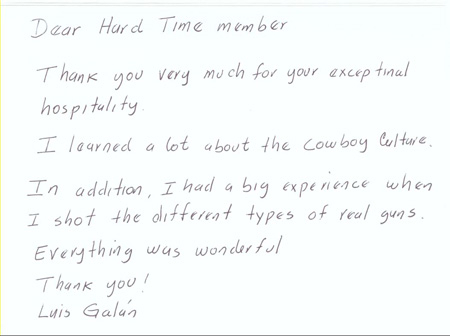 Dear Hard Time member
Thank you very much for your exceptinal
hospitality.
I learned a lot about the Cowboy Culture.
In addition, I had a big experience when
I shot the different types of real guns.
Everything was wonderful
Thank you!
Luis Galán